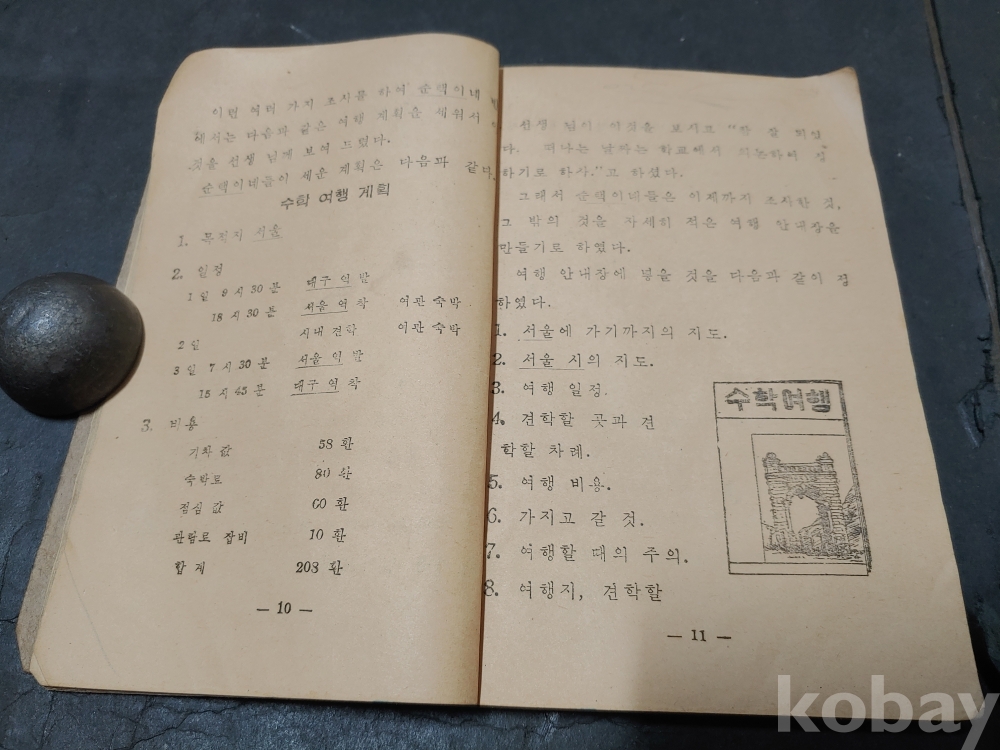 이런 여러 가지 조사를 하여 순택이네
에서는 다음과 같은 여행 계획을 세워서
것을 선생 님께 보여 드렸다.
순택이네들이 세운 계획은 다음과 같다.
수학 여행 계획
1. 목적지 서울
2. 일정
1일 9시 30분 대구 역 발
18시 30분 서울 역 착 여관 숙박
2일 시내 견학 여관 숙박
3일 7시 30분 서울 역 발
15시 45분 대구 역 착
3. 비용
기차 값 58 환
숙박료 80 환
점심 값 60 환
관람료 잡비 10 환
합 계 208 환
— 10 —
선생 님이 이것을 보시고 "참 잘 되었
다. 떠나는 날짜는 학교에서 의논하여 정
하기로 하자."고 하셨다.
그래서 순택이네들은 이제까지 조사한 것,
그 밖의 것을 자세히 적은 여행 안내장을
만들기로 하였다.
여행 안내장에 넣을 것을 다음과 같이 정
하였다.
1. 서울에 가기까지의 지도.
2. 서울 시의 지도.
3. 여행 일정.
4. 견학할 곳과 견
학할 차례.
5. 여행 비용.
6. 가지고 갈 것.
7. 여행할 때의 주의.
8. 여행지, 견학할
수학여행
— 11 —
kobay